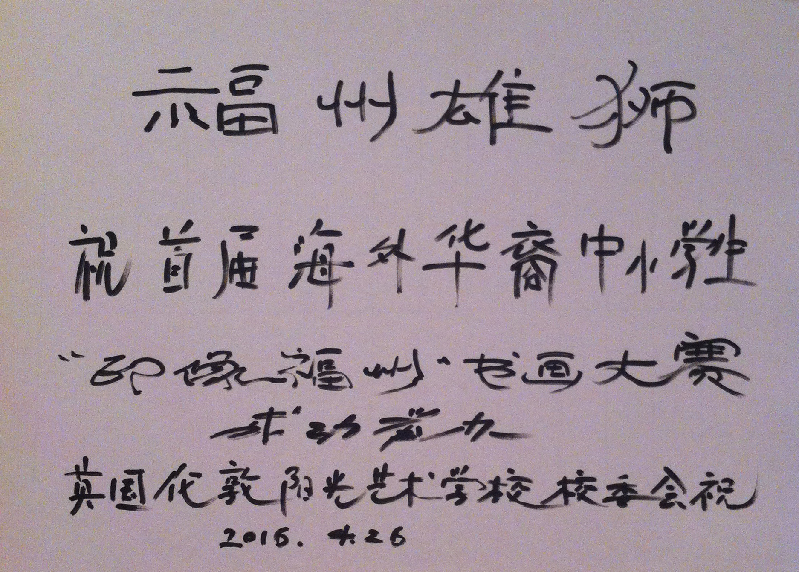 福州雄狮
祝首届海外华裔中小学生
“印像福州”书画大赛
成功举办
英国伦敦阳光艺术学校校委会祝
2016.4.26